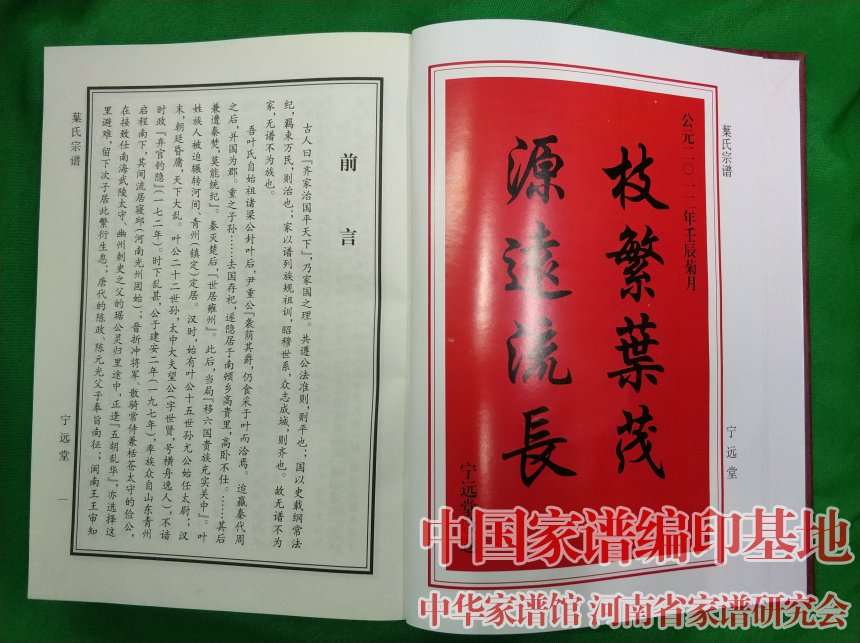 葉氏宗谱
公元二〇一二年壬辰菊月
枝繁葉茂
源遠流長
宁远堂
宁远堂
前言
古人曰『齐家治国平天下』，乃家国之理。共遵公法准则，则平也；国以史载纲常法
纪，羁束万民，则治也；家以谱列族规祖训，昭穆世系，众志成城，则齐也。故无谱不为
家，无谱不为族也。
吾叶氏自始祖诸梁公封叶后，尹重公『袭荫其爵，仍食采于叶而洽焉。迨嬴秦代周
之后，并国为郡。重之子孙……去国存祀，遂隐居于南顿乡高贵里，高卧不仕。……其后
兼遭秦焚，莫能统纪』。秦灭楚后，『世居雍州』。此后，当局『移六国贵族充实关中』。叶
姓族人被迫辗转河间、青州（镇定）定居。汉时，始有叶公十五世孙尤公始任太尉；汉
末，朝廷昏庸，天下大乱。叶公二十二世孙，太中大夫望公（字世贤，号横舟逸人），不谙
时政『弃官钓隐』（一七二年）。时下乱甚，公于建安二年（一九七年），率族众自山东青州
启程南下，其间流居寝邱（河南光州固始）；晋折冲将军、散骑常侍兼栝苍太守的俭公，
在接致仕南海武陵太守、幽州刺史之父的瑶公灵归里途中，正逢『五胡乱华』，亦选择这
里避难，留下次子居此繁衍生息；唐代的陈政、陈元光父子奉旨南征；闽南王王审知
葉氏宗谱
宁远堂
一
中国家谱编印基地
中华家谱馆 河南省家谱研究会